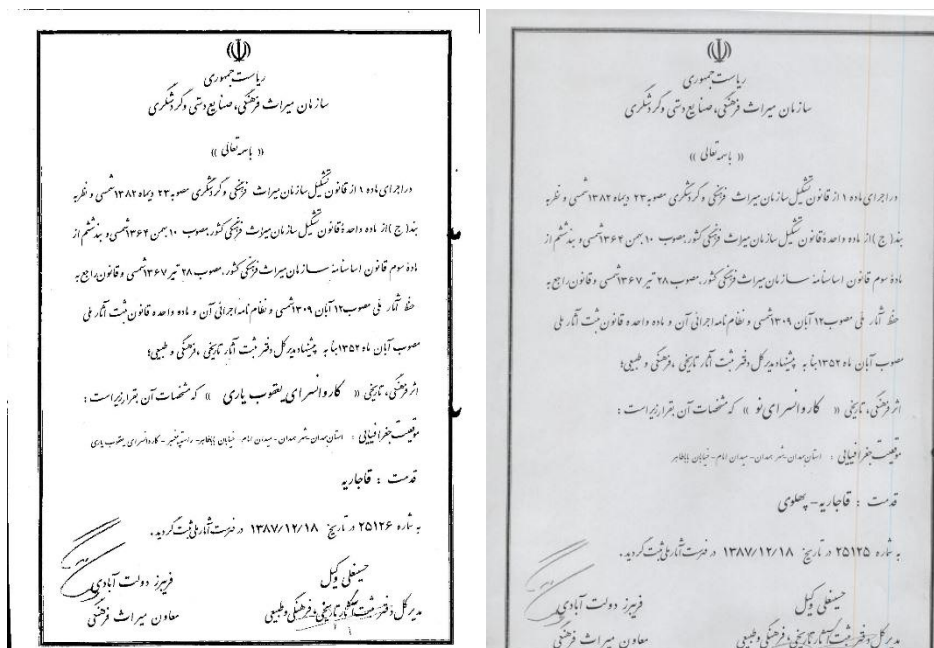 ریاست جمهوری
سازمان میراث فرهنگی، صنایع دستی و گردشگری
« باسمه تعالی »
در اجرای ماده ۱ از قانون تشکیل سازمان میراث فرهنگی و گردشگری مصوبه ۲۳ دیماه ۱۳۸۲ شمسی و نظر به
بند ( ج ) از ماده واحدهٔ قانون تشکیل سازمان میراث فرهنگی کشور مصوب ۱۰ بهمن ۱۳۶۴ شمسی و بند ششم از
مادهٔ سوم قانون اساسنامهٔ سازمان میراث فرهنگی کشور، مصوب ۲۸ تیر ۱۳۶۷ شمسی و قانون راجع به
حفظ آثار ملی مصوب ۱۲ آبان ۱۳۰۹ شمسی و نظام نامه اجرائی آن و ماده واحده قانون ثبت آثار ملی
مصوب آبان ماه ۱۳۵۲ بنا به پیشنهاد مدیر کل دفتر ثبت آثار تاریخی ، فرهنگی و طبیعی؛
اثر فرهنگی، تاریخی « کاروانسرای یعقوب یاری » که مشخصات آن بقرار زیر است :
موقعیت جغرافیایی : استان همدان - شهر همدان - میدان امام - خیابان باباطاهر - راسته - کاروانسرای یعقوب یاری
قدمت : قاجاریه
به شماره ۲۵۱۲۶ در تاریخ ۱۳۸۷/۱۲/۱۸ در فهرست آثار ملی ثبت گردید .
حسینعلی وکیل
مدیر کل دفتر ثبت آثار تاریخی و فرهنگی و طبیعی
فریبرز دولت آبادی
معاون میراث فرهنگی
ریاست جمهوری
سازمان میراث فرهنگی، صنایع دستی و گردشگری
« باسمه تعالی »
در اجرای ماده ۱ از قانون تشکیل سازمان میراث فرهنگی و گردشگری مصوبه ۲۳ دیماه ۱۳۸۲ شمسی و نظر به
بند ( ج ) از ماده واحدهٔ قانون تشکیل سازمان میراث فرهنگی کشور مصوب ۱۰ بهمن ۱۳۶۴ شمسی و بند ششم از
مادهٔ سوم قانون اساسنامهٔ سازمان میراث فرهنگی کشور، مصوب ۲۸ تیر ۱۳۶۷ شمسی و قانون راجع به
حفظ آثار ملی مصوب ۱۲ آبان ۱۳۰۹ شمسی و نظام نامه اجرائی آن و ماده واحده قانون ثبت آثار ملی
مصوب آبان ماه ۱۳۵۲ بنا به پیشنهاد مدیر کل دفتر ثبت آثار تاریخی ، فرهنگی و طبیعی؛
اثر فرهنگی، تاریخی « کاروانسرای نو » که مشخصات آن بقرار زیر است :
موقعیت جغرافیایی : استان همدان - شهر همدان - میدان امام - خیابان باباطاهر
قدمت : قاجاریه - پهلوی
به شماره ۲۵۱۲۵ در تاریخ ۱۳۸۷/۱۲/۱۸ در فهرست آثار ملی ثبت گردید .
حسینعلی وکیل
مدیر کل دفتر ثبت آثار تاریخی و فرهنگی و طبیعی
فریبرز دولت آبادی
معاون میراث فرهنگی